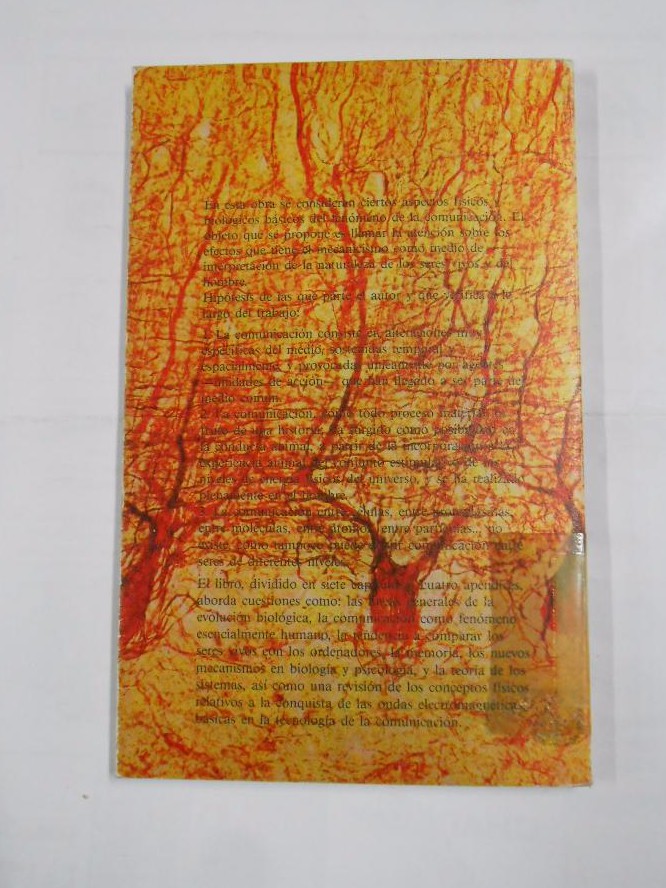 En esta obra se consideran ciertos aspectos físicos y
biológicos básicos del fenómeno de la comunicación. El
objeto que se propone es llamar la atención sobre los
efectos que tiene el mecanicismo como medio de
interpretación de la naturaleza de los seres vivos y del
hombre.
Hipótesis de las que parte el autor y que verifica a lo
largo del trabajo:
1. La comunicación consiste en alteraciones muy
específicas del medio, sostenidas temporal y
espacialmente, y provocadas únicamente por agentes
—unidades de acción— que han llegado a ser parte del
medio común.
2. La comunicación, como todo proceso material es
fruto de una historia, ha surgido como posibilidad en
la conducta animal, a partir de la incorporación a la
experiencia animal del conjunto
niveles de energía físicos del universo, y se ha realizado
plenamente en el hombre.
3. La comunicación entre células, entre protoplasmas,
entre moléculas, entre átomos, entre partículas... no
existe, como tampoco puede existir comunicación entre
seres de diferentes niveles.
El libro, dividido en siete capítulos y cuatro apéndices,
aborda cuestiones como: las líneas generales de la
evolución biológica, la comunicación como fenómeno
esencialmente humano, la tendencia a comparar los
seres vivos con los ordenadores, la memoria, los nuevos
mecanismos en biología y psicología, y la teoría de los
sistemas, así como una revisión de los conceptos físicos
relativos a la conquista de las ondas electromagnéticas,
básicas en la tecnología de la comunicación.